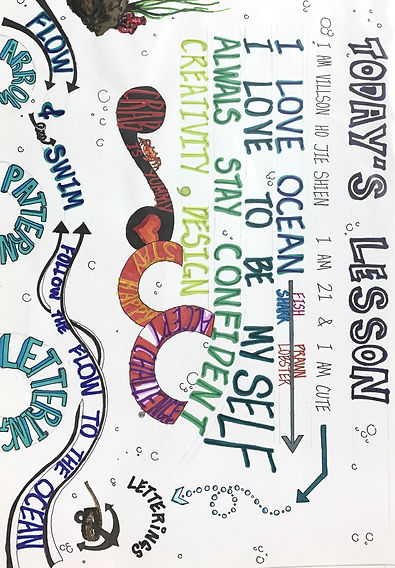 TODAY'S LESSON
I AM VILLSON HO JIE SHIEN I AM 21 & I AM CUTE
FISH PRAWN
SHARK LOBSTER
I LOVE OCEAN
I LOVE TO BE MYSELF
ALWAYS STAY CONFIDENT
CREATIVITY, DESIGN
CRAB IS YUMMY
STAY HAPPY
ACCEPT CHALLENGE
LETTERINGS
FLOW
& SWIM
FOLLOW THE FLOW TO THE OCEAN
ARROW
PATTERN
LETTERING